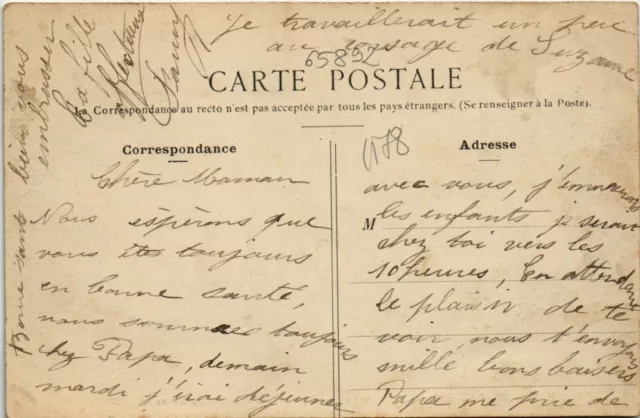 Je travaillerait un peu
au corsage de Suzanne
65892
CARTE POSTALE
La Correspondance au recto n'est pas acceptée par tous les pays étrangers. (Se renseigner à la Poste).
Correspondance
Chère Maman
Nous éspérons que
vous êtes toujours
en bonne santé,
nous sommes toujours
chez Papa, demain
mardi j'irai déjeuner
1178
Adresse
avec vous, j'emmenerais
M
les enfants je serais
chez toi vers les
10 heures, En attendant
le plaisir de te
voir, nous t'envoyons
mille bons baisers
Papa me prie de
bien vous
embrasser
Bonne santé
Ta fille
Fanny